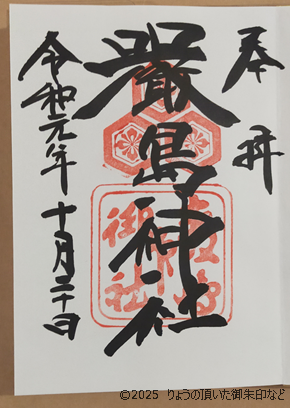 奉拝
嚴島神社
令和元年十月二十日
©2025 りょうの頂いた御朱印など